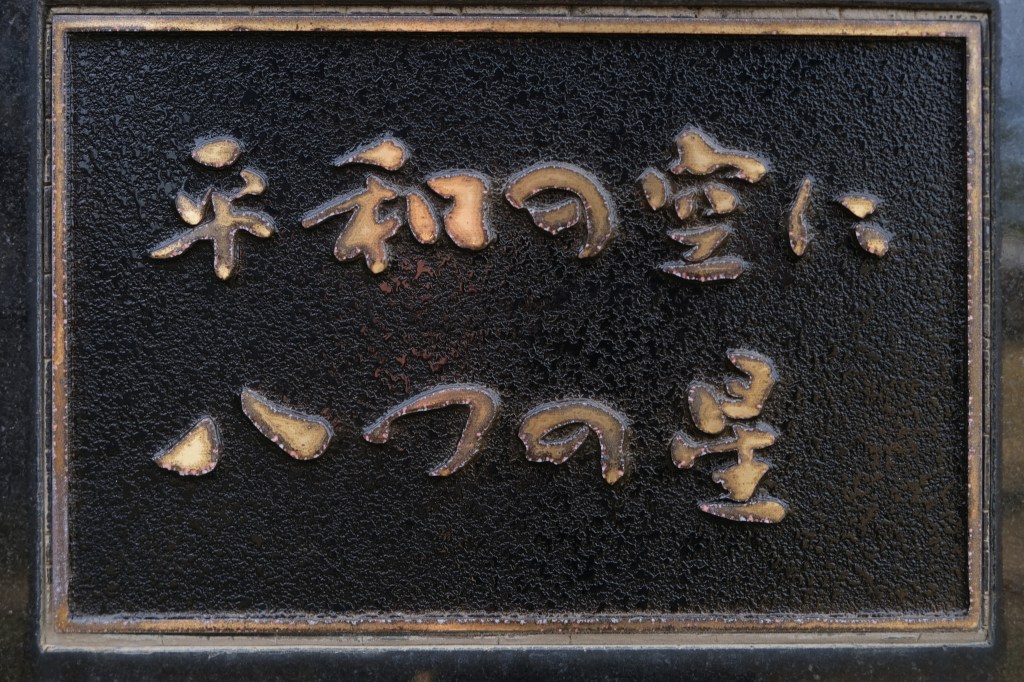 平和の空に
八つの星